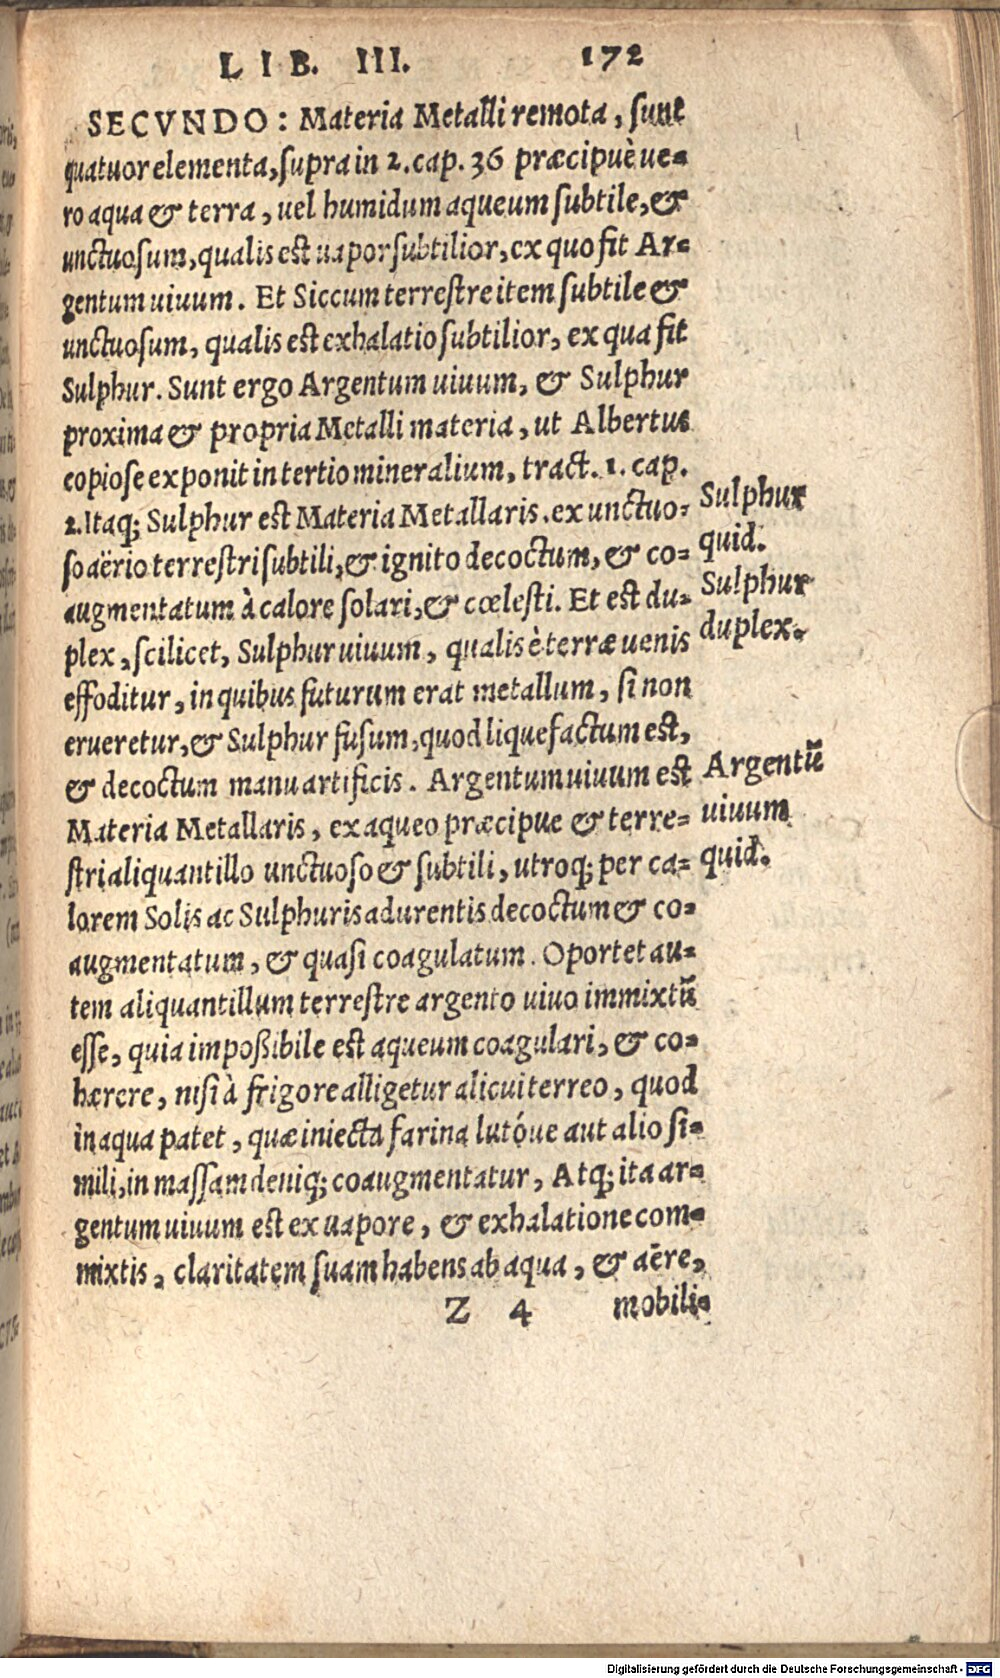 LIB. III. 172
SECVNDO: Materia Metalli remota, sunt
quatuor elementa, supra in 2. cap. 36 præcipuè ue-
ro aqua & terra, uel humidum aqueum subtile, &
unctuosum, qualis est uapor subtilior, ex quo fit Ar-
gentum uiuum. Et Siccum terrestre item subtile &
unctuosum, qualis est exhalatio subtilior, ex qua fit
Sulphur. Sunt ergo Argentum uiuum, & Sulphur
proxima & propria Metalli materia, ut Albertus
copiose exponit in tertio mineralium, tract. 1. cap.
2. Itaq; Sulphur est Materia Metallaris, ex unctuo-
so aërio terrestri subtili, & ignito decoctum, & co-
augmentatum à calore solari, & cœlesti. Et est du-
plex, scilicet, Sulphur uiuum, qualis è terræ uenis
effoditur, in quibus futurum erat metallum, si non
erueretur, & Sulphur fusum, quod liquefactum est,
& decoctum manu artificis. Argentum uiuum est
Materia Metallaris, ex aqueo præcipue & terre-
stri aliquantillo unctuoso & subtili, utroq; per ca-
lorem Solis ac Sulphuris adurentis decoctum & co-
augmentatum, & quasi coagulatum. Oportet au-
tem aliquantillum terrestre argento uiuo immixtū
esse, quia impoßibile est aqueum coagulari, & co-
hærere, nisi à frigore alligetur alicui terreo, quod
in aqua patet, quæ iniecta farina lutóue aut alio si-
mili, in massam deniq; coaugmentatur, Atq; ita ar-
gentum uiuum est ex uapore, & exhalatione com-
mixtis, claritatem suam habens ab aqua, & aëre,
Z 4 mobili-
Sulphur
quid.
Sulphur
duplex.
Argentū
uiuum
quid.
Digitalisierung gefördert durch die Deutsche Forschungsgemeinschaft - DFG